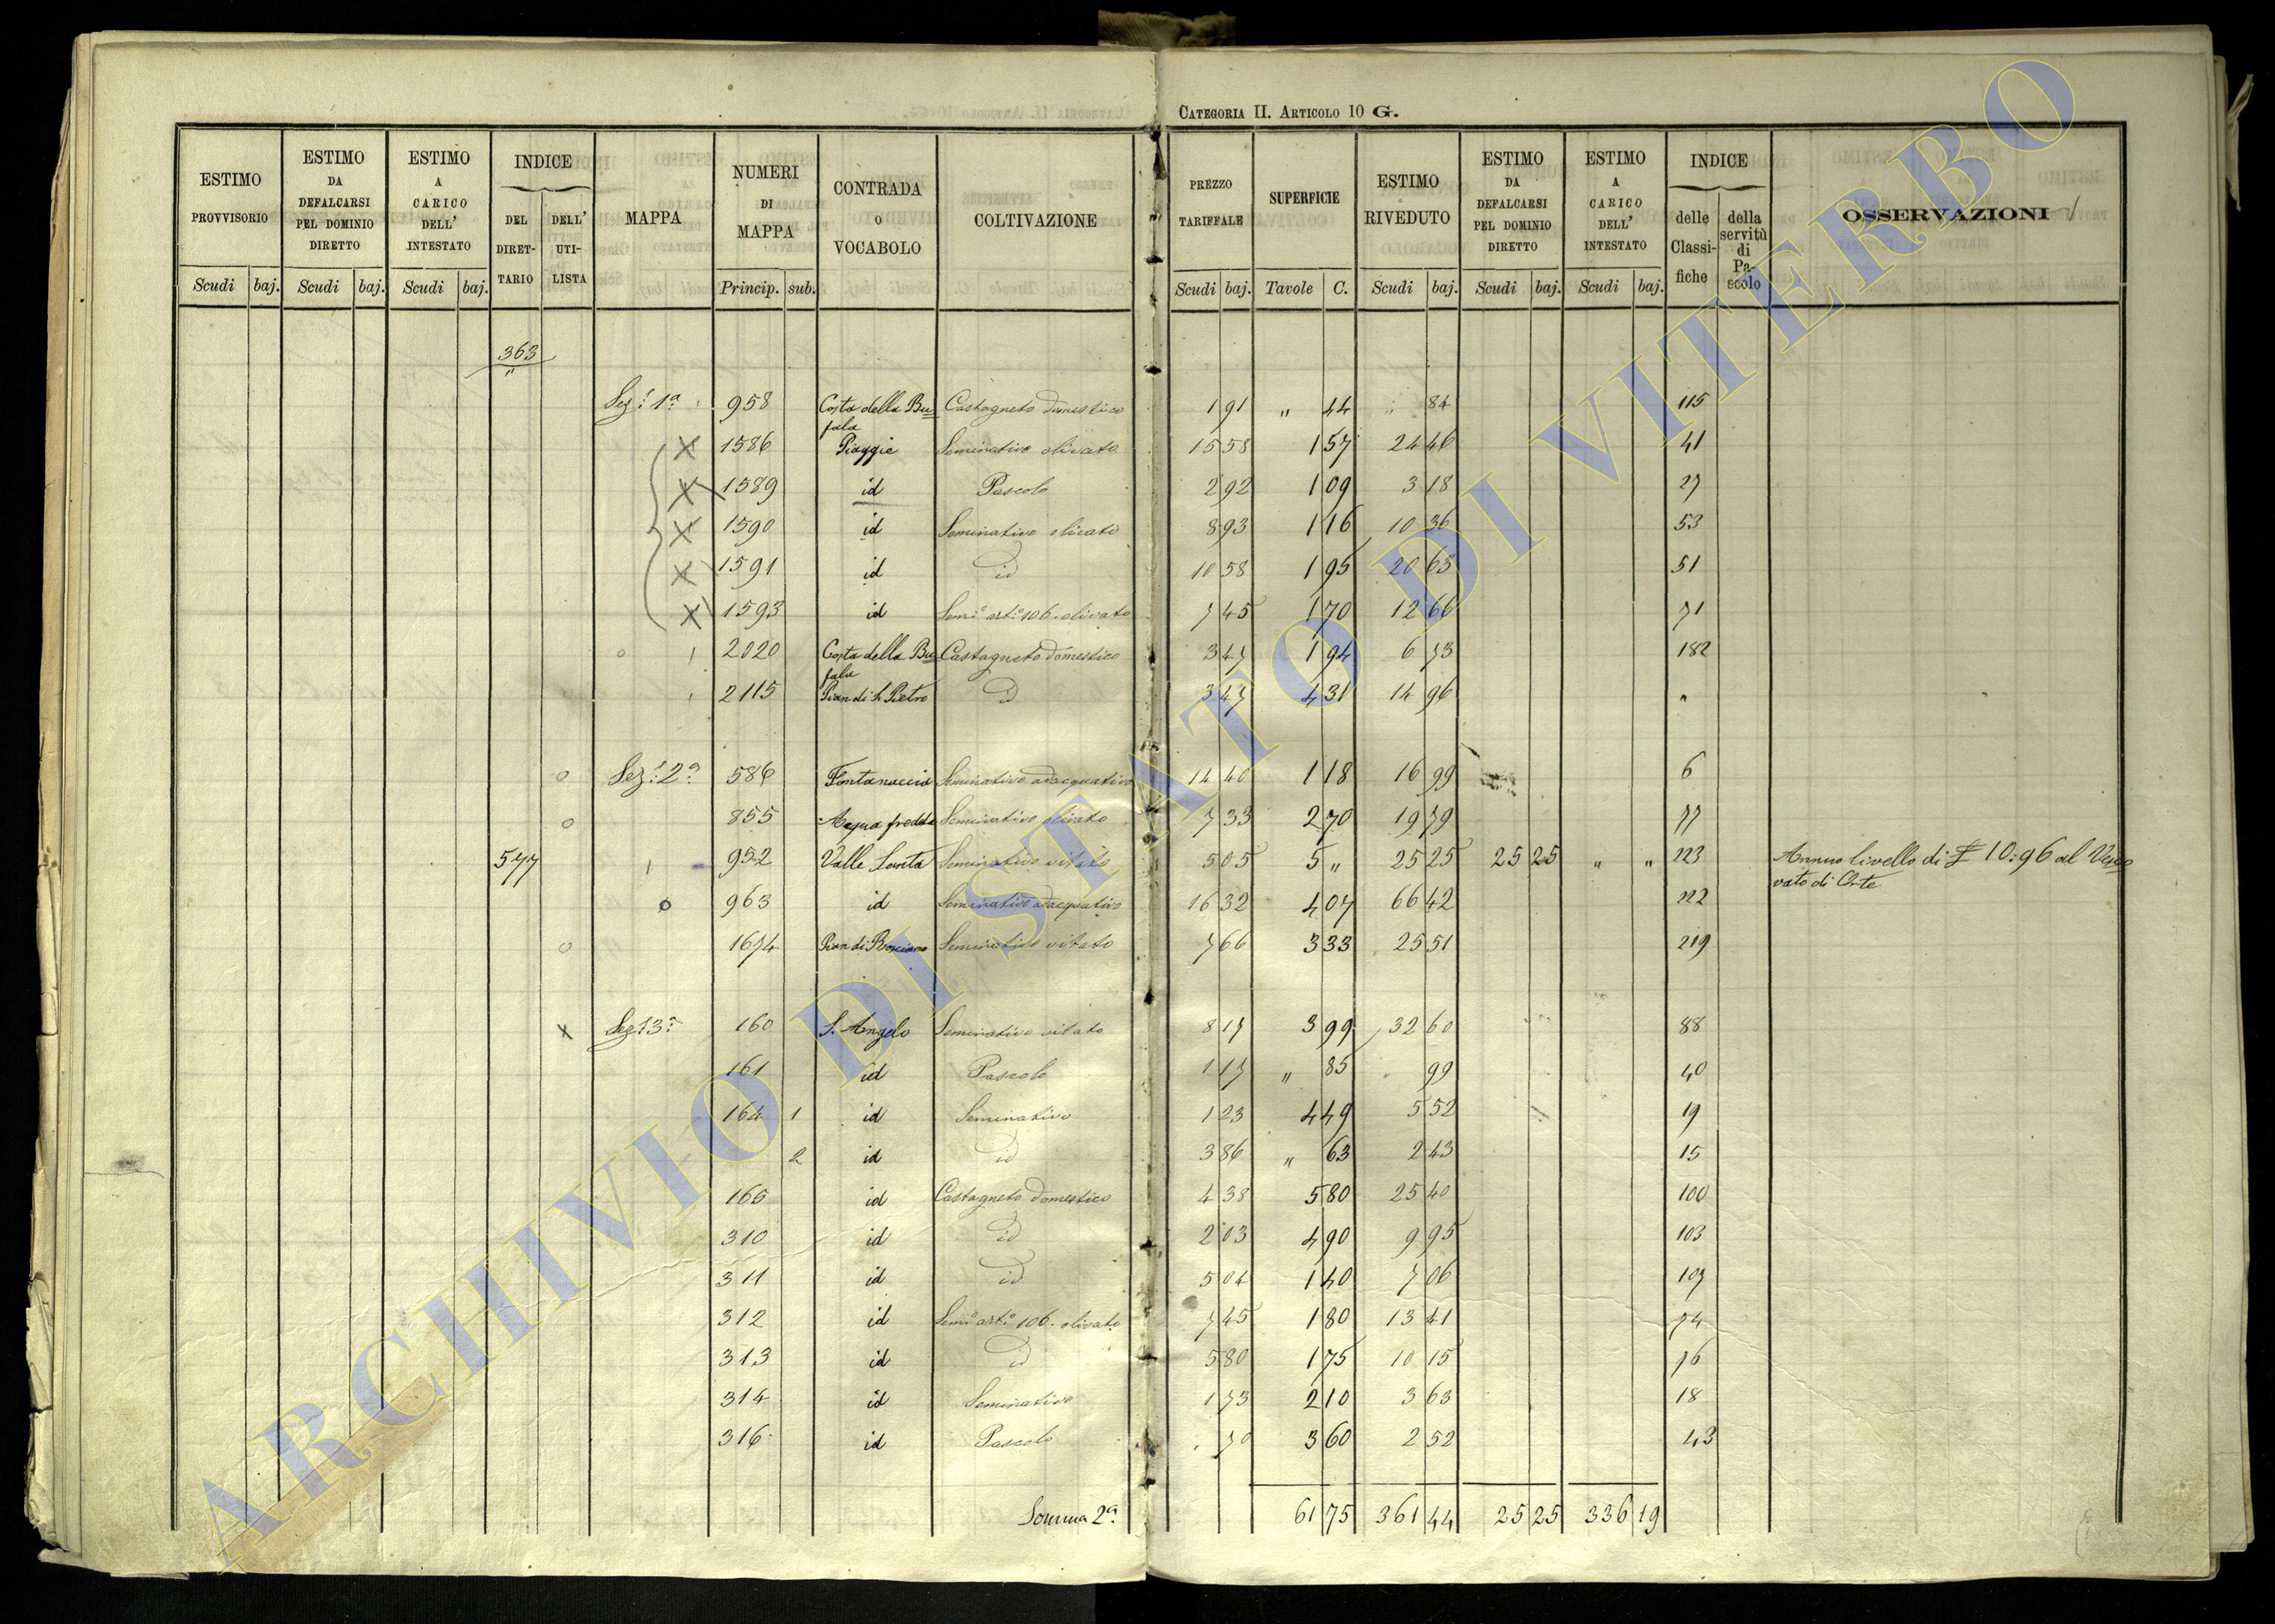 CATEGORIA II. ARTICOLO 10 G.
ESTIMO PROVVISORIO | ESTIMO DA DEFALCARSI PEL DOMINIO DIRETTO | ESTIMO A CARICO DELL' INTESTATO | INDICE | MAPPA | NUMERI DI MAPPA | CONTRADA O VOCABOLO | COLTIVAZIONE | PREZZO TARIFFALE | SUPERFICIE | ESTIMO RIVEDUTO | ESTIMO DA DEFALCARSI PEL DOMINIO DIRETTO | ESTIMO A CARICO DELL' INTESTATO | INDICE | OSSERVAZIONI
DEL DIRET-TARIO | DELL' UTI-LISTA | delle Classi-fiche | della servitù di Pa-scolo
Scudi | baj. | Scudi | baj. | Scudi | baj. | Princip. | sub. | Scudi | baj. | Tavole | C. | Scudi | baj. | Scudi | baj. | Scudi | baj.
363
"
Sez: 1ª | 958 | Costa della Bu=fala | Castagneto domestico | 1 91 | " 44 | " 84 | 115
X | 1586 | Piaggie | Seminativo olivato | 15 58 | 1 57 | 24 46 | 41
X | 1589 | id | Pascolo | 2 92 | 1 09 | 3 18 | 27
X | 1590 | id | Seminativo olivato | 8 93 | 1 16 | 10 36 | 53
X | 1591 | id | id | 10 58 | 1 95 | 20 63 | 51
X | 1593 | id | Semi.º art.º 106. olivato | 7 45 | 1 70 | 12 66 | 71
2020 | Costa della Bu=fala | Castagneto domestico | 3 47 | 1 94 | 6 73 | 182
2115 | Pian di S. Pietro | id | 3 47 | 4 31 | 14 96 | "
Sez: 2ª | 586 | Fontanaccia | Seminativo adacquativo | 14 40 | 1 18 | 16 99 | 6
855 | Acqua fredda | Seminativo olivato | 7 33 | 2 70 | 19 79 | 77
577 | 952 | Valle Santa | Seminativo vitato | 5 05 | 5 " | 25 25 | 25 25 | " " | 223 | Annuo livello di £ 10:96 al Vesco=vato di Orte
963 | id | Seminativo adacquativo | 16 32 | 4 07 | 66 42 | 222
1674 | Pian di | Seminativo vitato | 7 66 | 3 33 | 25 51 | 219
X | Sez: 3ª | 160 | S. Angelo | Seminativo vitato | 8 17 | 3 99 | 32 60 | 88
161 | id | Pascolo | 1 17 | " 85 | " 99 | 40
164 | 1 | id | Seminativo | 1 23 | 4 49 | 5 52 | 19
2 | id | id | 3 86 | " 63 | 2 43 | 15
165 | id | Castagneto domestico | 4 38 | 5 80 | 25 40 | 100
310 | id | id | 2 03 | 4 90 | 9 95 | 103
311 | id | id | 5 04 | 1 40 | 7 06 | 107
312 | id | Semi.º art.º 106. olivato | 7 45 | 1 80 | 13 41 | 74
313 | id | id | 5 80 | 1 75 | 10 15 | 76
314 | id | Seminativo | 1 73 | 2 10 | 3 63 | 18
316 | id | Pascolo | . 70 | 3 60 | 2 52 | 43
Somma 2ª | 61 75 | 361 44 | 25 25 | 336 19
ARCHIVIO DI STATO DI VITERBO